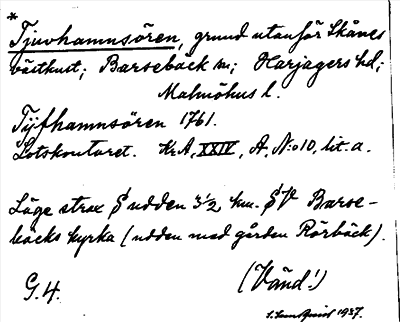 *
Tjuvhamnsören, grund utanför Skånes
västkust; Barsebäck sn; Harjagers hd;
Malmöhus l.
Tjyfhamnsören 1761.
Lotskontoret. KrA, XXIV, A, N:o 10, lit. a.
Läge strax S udden 3 1/2 km. SV Barse-
bäcks kyrka (udden med gården Rörbäck).
G. 4.
(Vänd!)
1937.